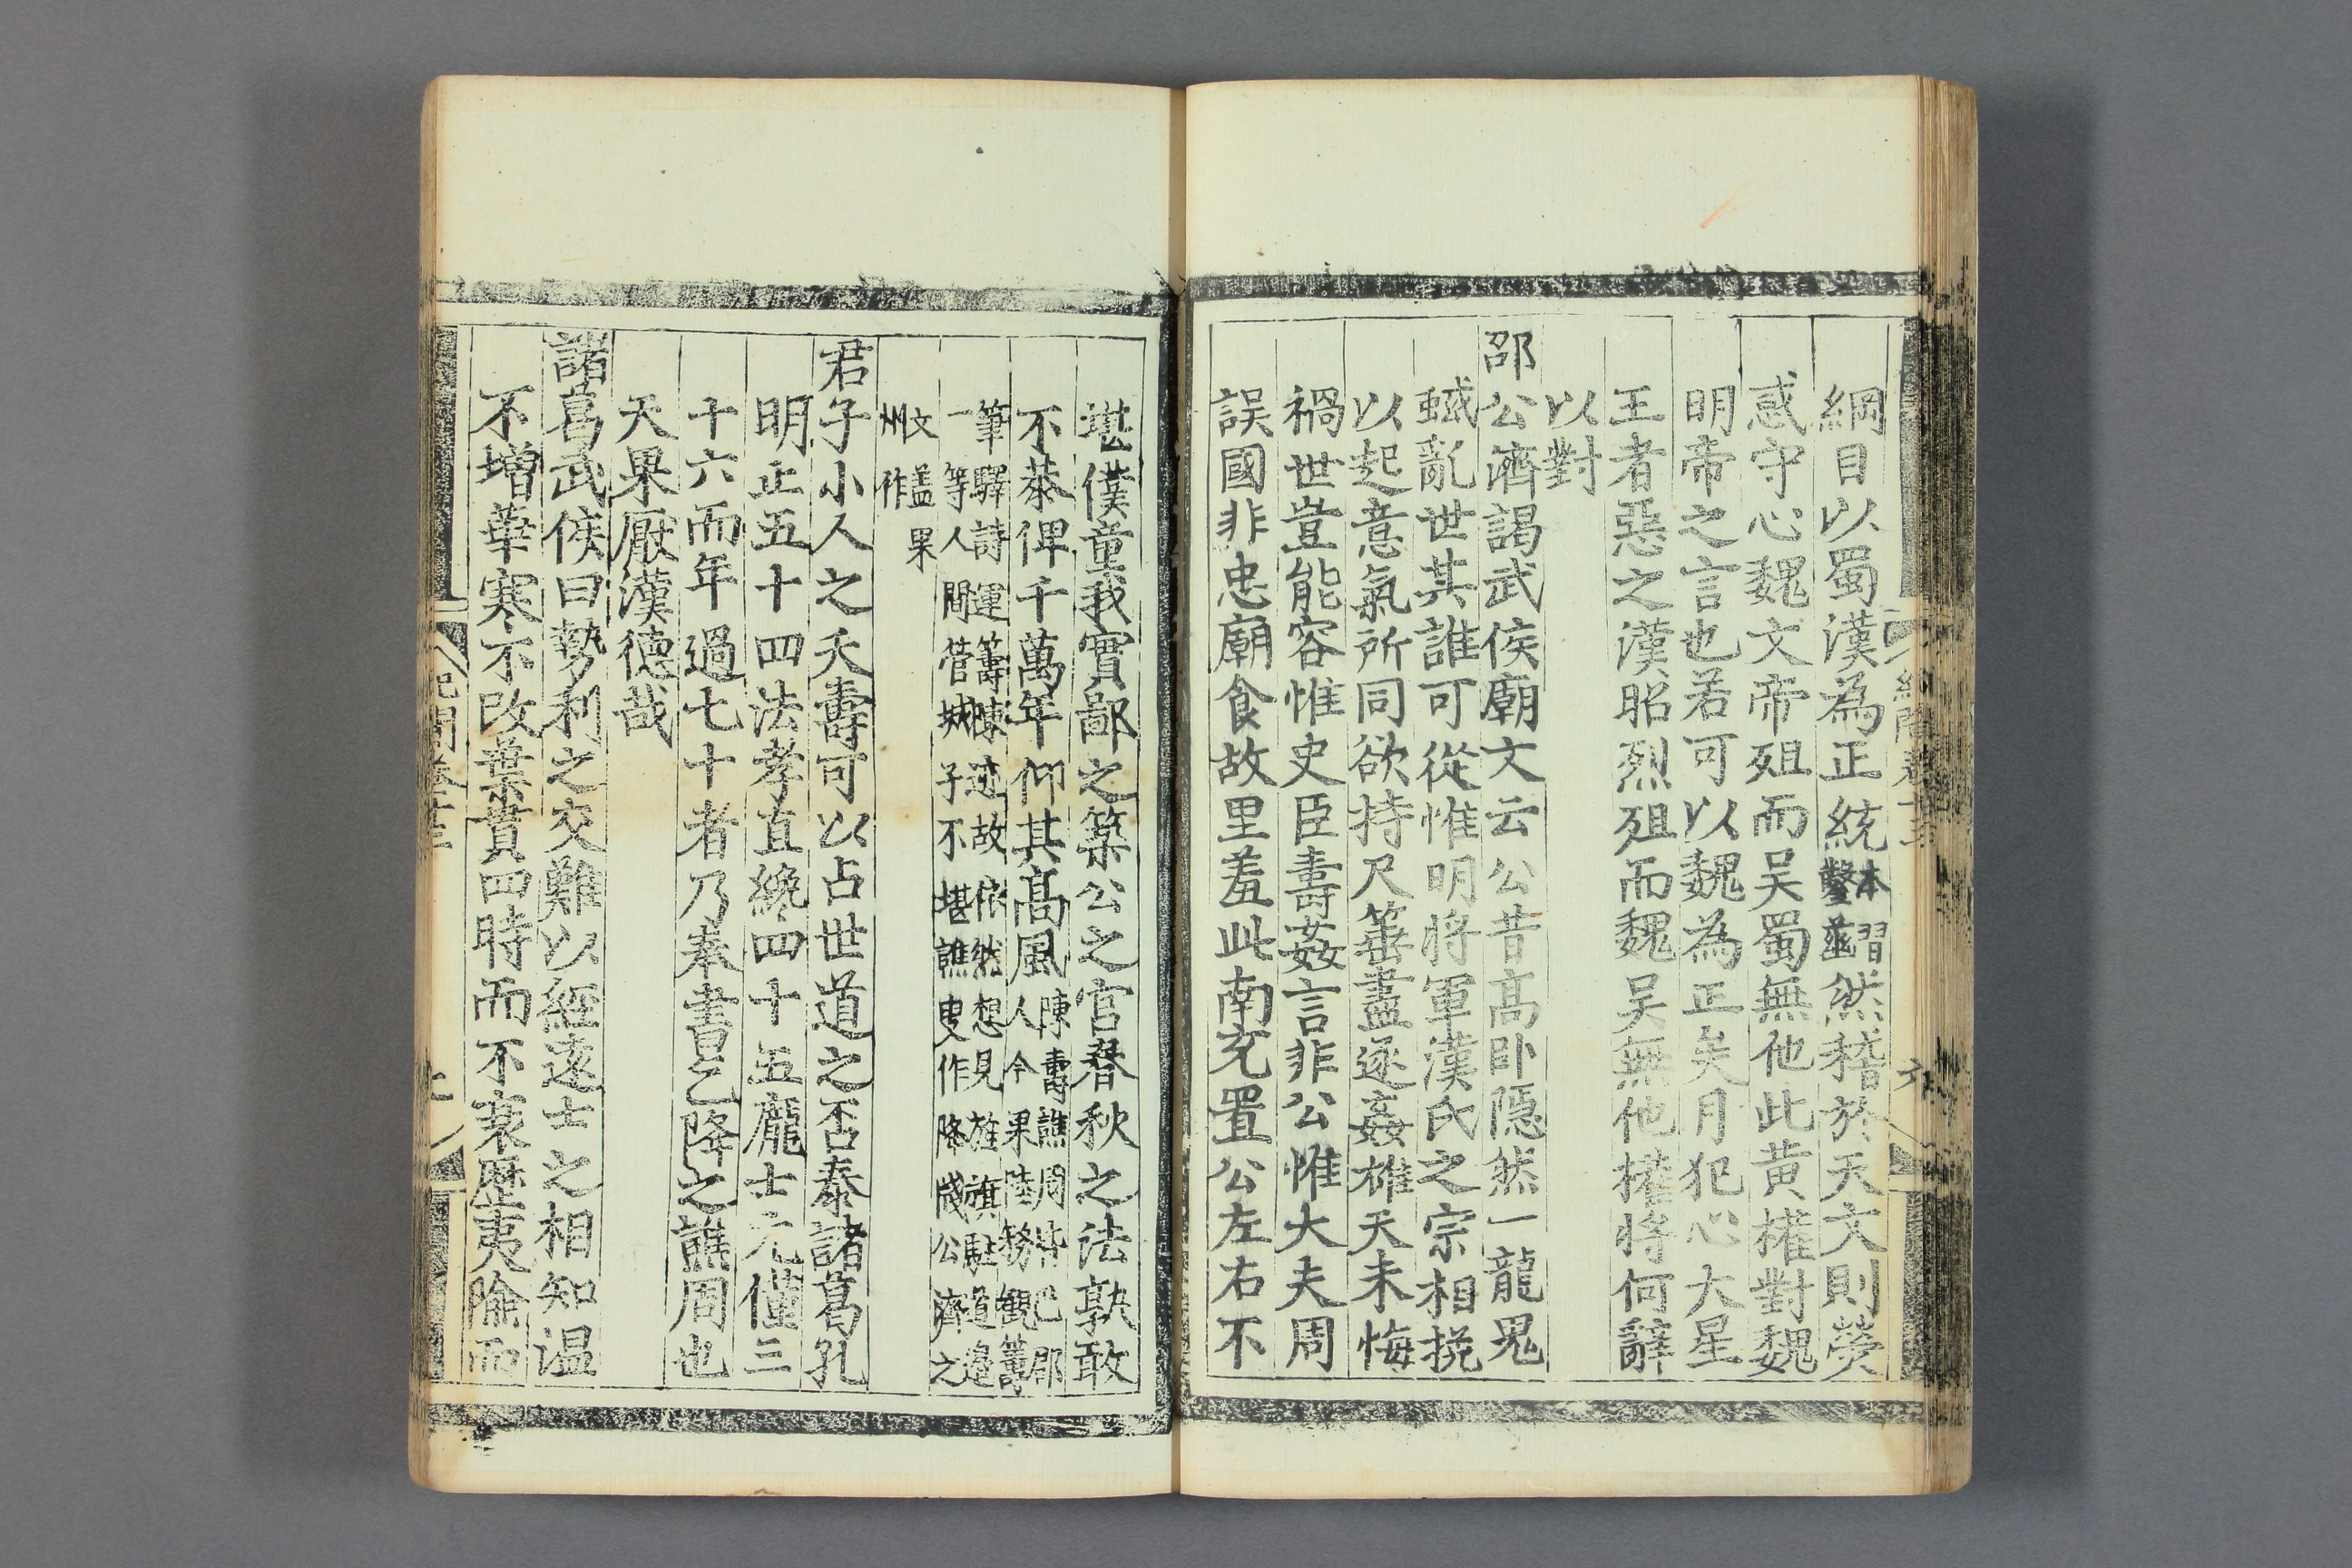 綱目以蜀漢為正統本習鑿齒然稽於天文則熒
惑守心魏文帝殂而吴蜀無他此黄權對魏
明帝之言也若可以魏為正矣月犯心大星
王者惡之漢昭烈殂而魏吴無他權將何辭
以對
邵公濟謁武侯廟文云公昔髙卧隠然一龍鬼
蜮亂世其誰可從惟明將軍漢氏之宗相挽
以起意氣所同欲持尺箠盡逐姦雄天未悔
禍世豈能容惟史臣壽姦言非公惟大夫周
誤國非忠廟食故里羞此南充置公左右不
堪僕童我實鄙之築公之宫春秋之法孰敢
不恭俾千萬年仰其髙風陳壽譙周皆巴郡
人今果陸務觀籌
筆驛詩運籌陳迹故依然想見旌旗駐道邊
一等人間管城子不堪譙叟作降牋公濟之
文盖果
州作
君子小人之夭壽可以占世道之否泰諸葛孔
明止五十四法孝直纔四十五龐士元僅三
十六而年過七十者乃奉書乞降之譙周也
天果厭漢德哉
諸葛武侯曰勢利之交難以經逺士之相知温
不増華寒不改葉貫四時而不衰歴夷險而